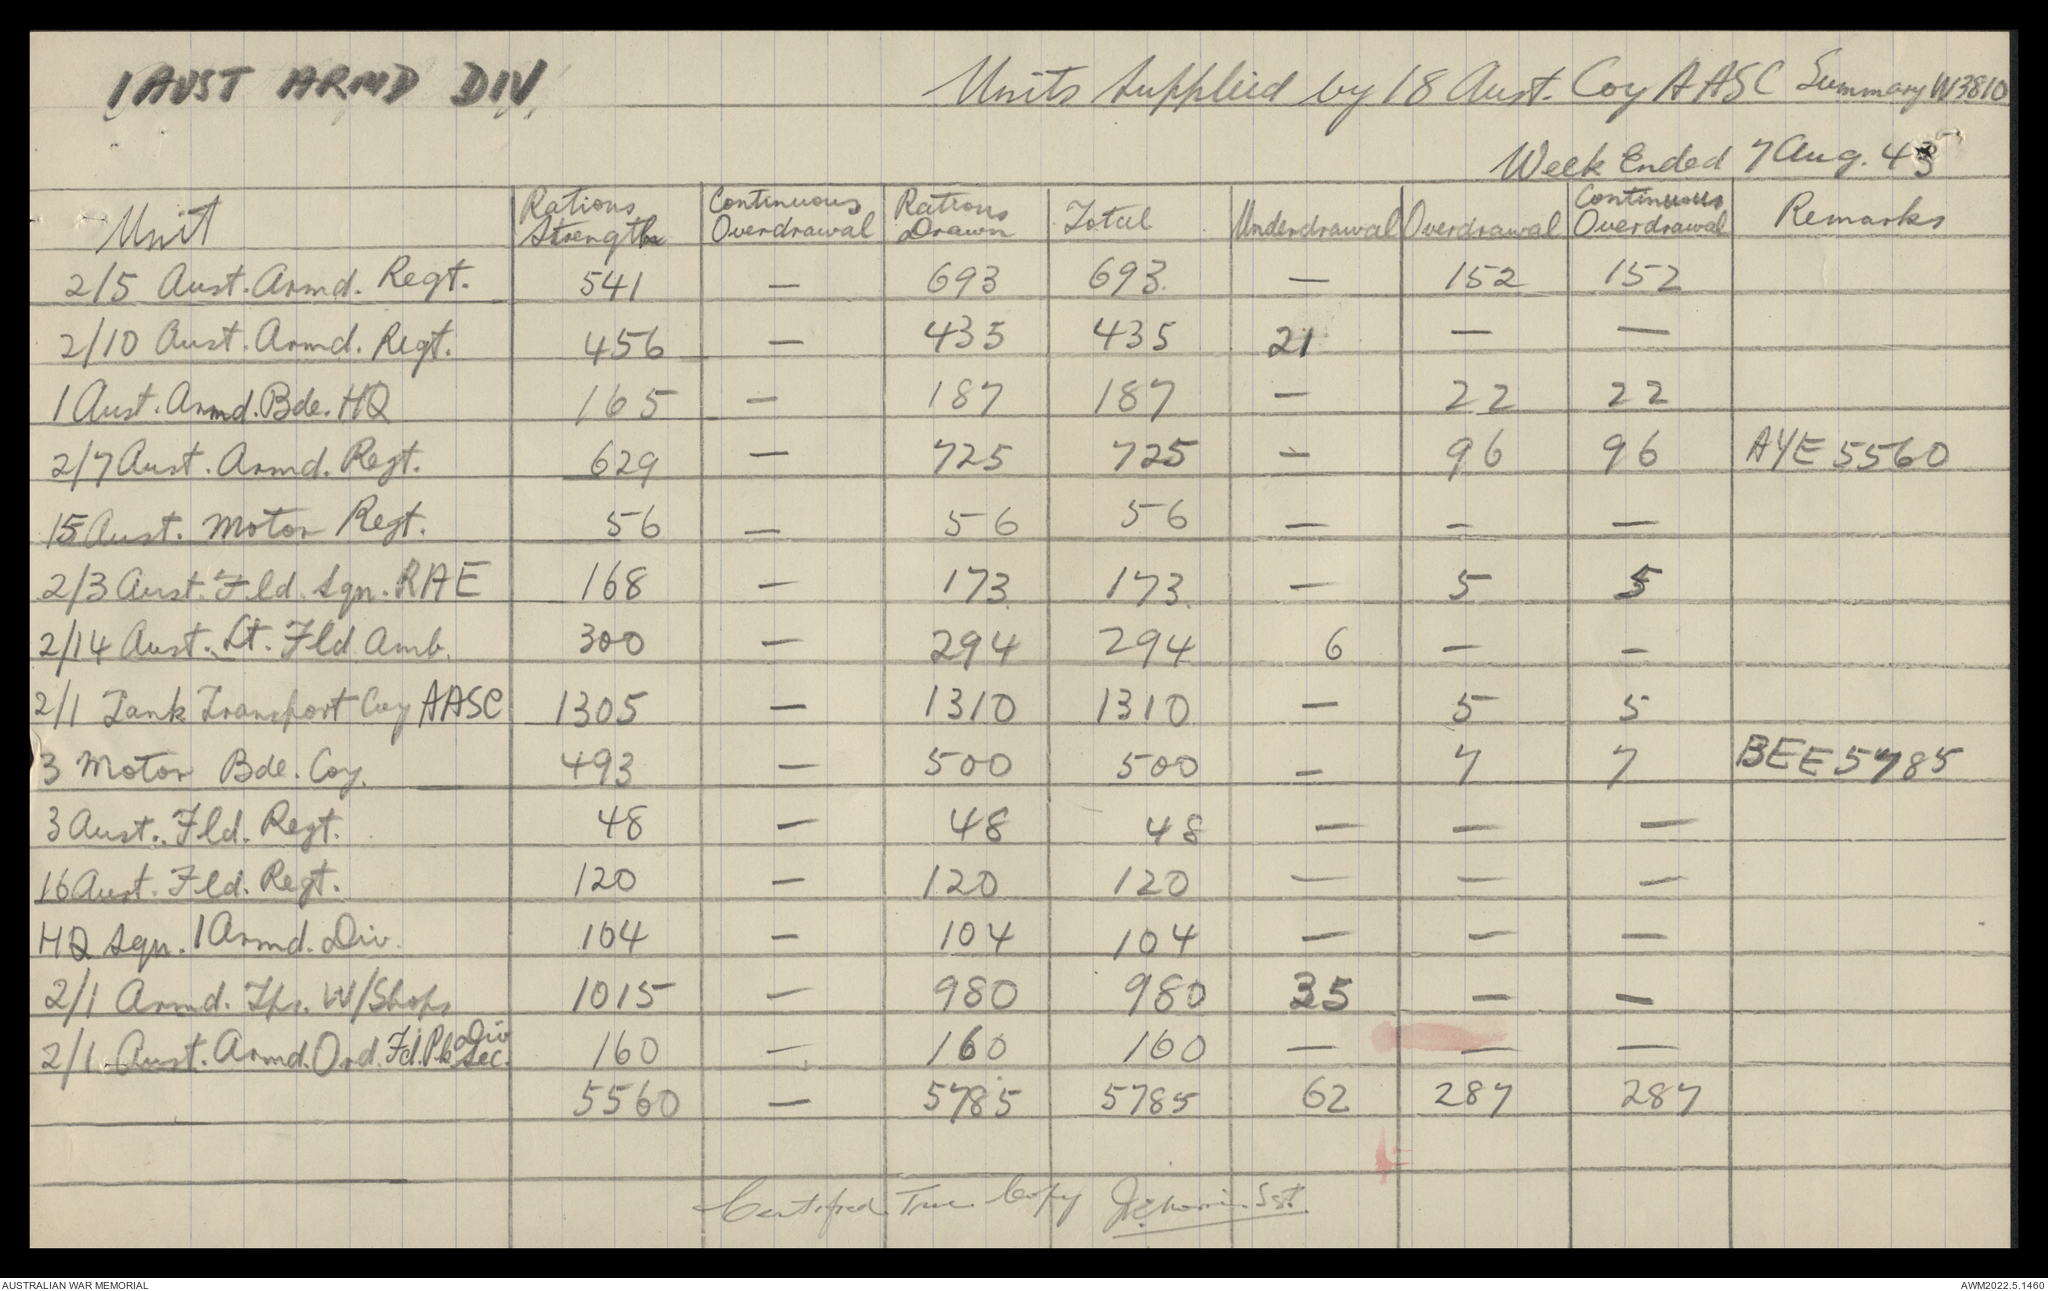 1 AUST ARMD DIV.
Units supplied by 18 Aust. Coy AASC Summary W3810
Week Ended 7 Aug. 43
Unit | Rations Strength | Continuous Overdrawal | Rations Drawn | Total | Underdrawal | Overdrawal | Continuous Overdrawal | Remarks
2/5 Aust. Armd. Regt. | 541 | — | 693 | 693 | — | 152 | 152
2/10 Aust. Armd. Regt. | 456 | — | 435 | 435 | 21 | — | —
1 Aust. Armd. Bde. HQ | 165 | — | 187 | 187 | — | 22 | 22
2/7 Aust. Armd. Regt. | 629 | — | 725 | 725 | — | 96 | 96 | AYE 5560
15 Aust. Motor Regt. | 56 | — | 56 | 56 | — | — | —
2/3 Aust. Fld. Sqn. RAE | 168 | — | 173 | 173 | — | 5 | 5
2/14 Aust. Lt. Fld Amb. | 300 | — | 294 | 294 | 6 | — | —
2/1 Tank Transport Coy AASC | 1305 | — | 1310 | 1310 | — | 5 | 5
3 Motor Bde. Coy. | 493 | — | 500 | 500 | — | 7 | 7 | BEE 5785
3 Aust. Fld. Regt. | 48 | — | 48 | 48 | — | — | —
16 Aust. Fld. Regt. | 120 | — | 120 | 120 | — | — | —
HQ Sqn. 1 Armd. Div. | 104 | — | 104 | 104 | — | — | —
2/1 Armd. Tps. W/Shops | 1015 | — | 980 | 980 | 35 | — | —
2/1 Aust. Armd. Ord. Fd. Pk. Div Sec. | 160 | — | 160 | 160 | — | — | —
5560 | — | 5785 | 5785 | 62 | 287 | 287
Certified True Copy Sgt.
AUSTRALIAN WAR MEMORIAL
AWM2022.5.1460